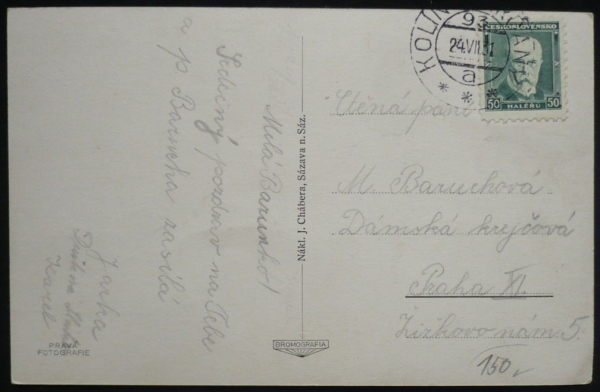 Milá Barunko!
Srdečný pozdrav na Tebe
a p Barucha zasílá
Jarka
Karel
PRAVÁ
FOTOGRAFIE
Nákl. J. Chábera, Sázava n. Sáz.
BROMOGRAFIA
KOLÍN
24.VII.31
a
* * *
ČESKOSLOVENSKO
50 HALÉŘŮ 50
Ctěná paní
M. Baruchová
Dámská krejčová
Praha XI.
Žižkovo nám 5.
150,